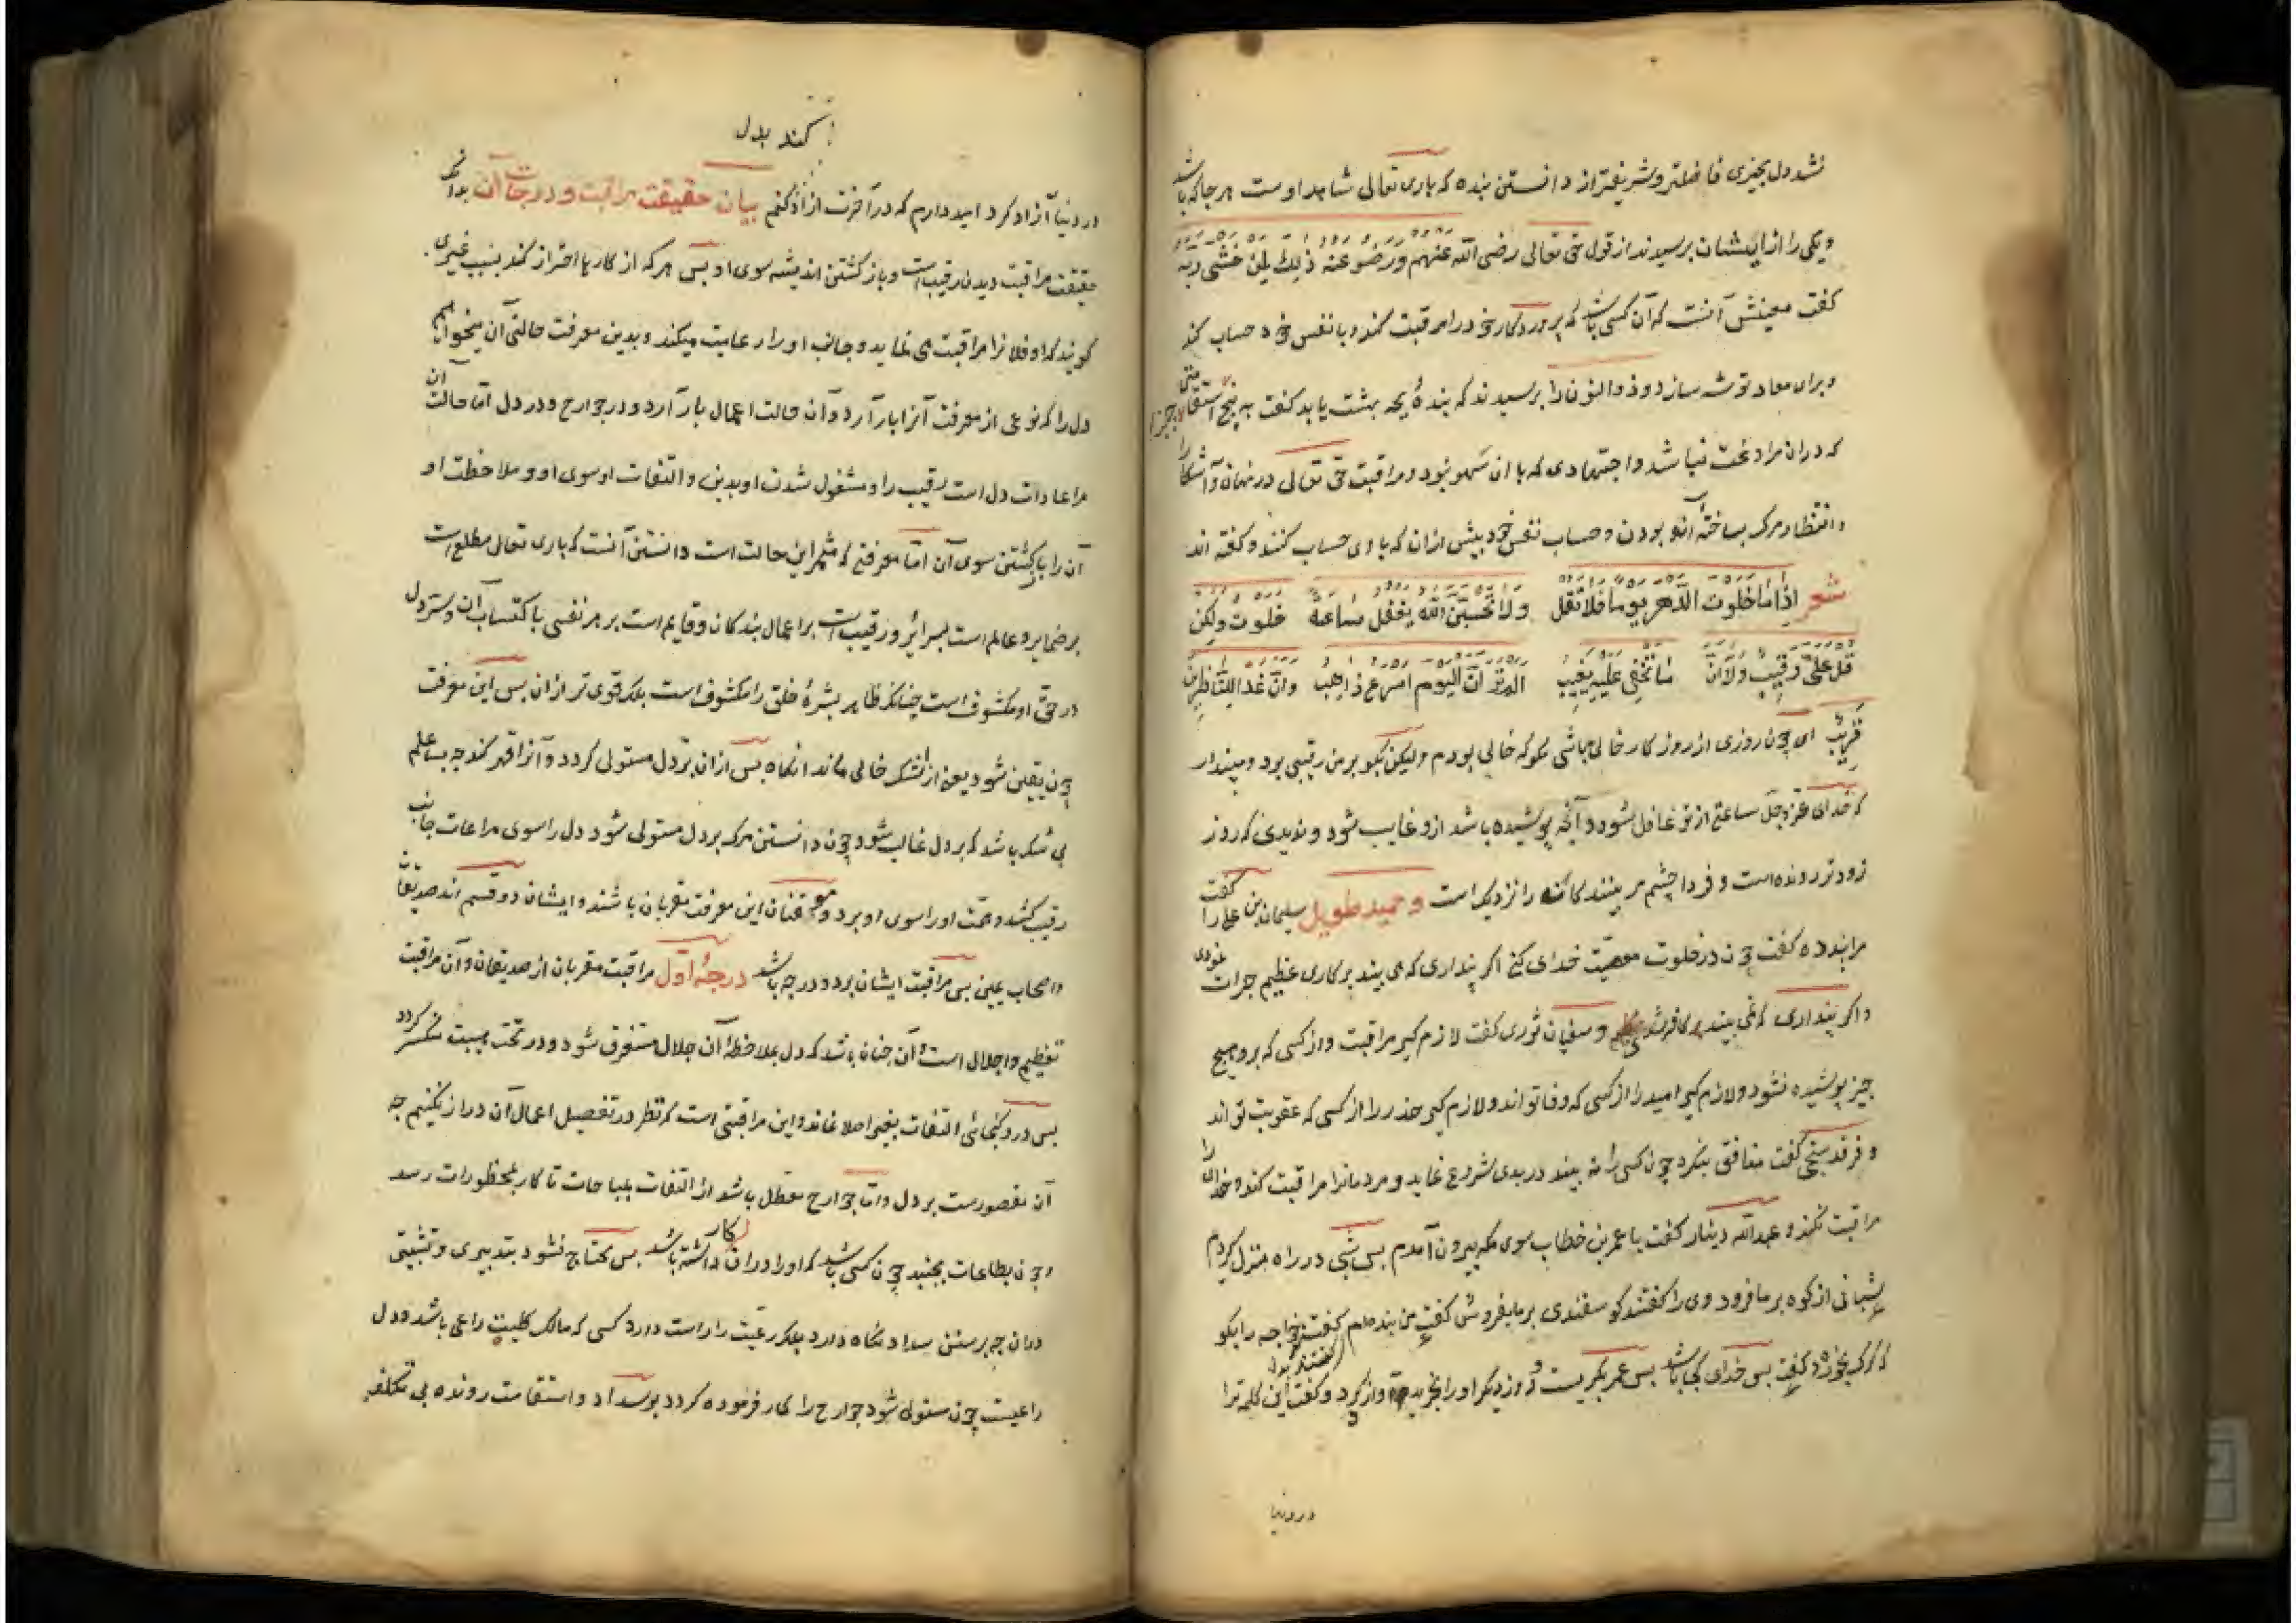 نشد دل بچیزی فاضلتر و شریفتر از دانستن بنده که باری تعالی شاهد اوست هر جا که باشد
و یکی را از ایشان پرسیدند از قول حق تعالی رضی الله عنهم و رضوا عنه ذلك لمن خشی ربه
گفت معنیش آنست که آن کسی باشد که پروردگار خود را مراقبت کند و با نفس خود حساب کند
و برای معاد توشه سازد و ذوالنون را پرسیدند که بنده بچه بهشت یابد گفت به پنج چیز استقامتی
که دران مراوغت نباشد و اجتهادی که با ان سهو نبود و مراقبت حق تعالی در نهان و آشکارا
و انتظار مرک بساخته آنرا بودن و حساب نفس خود پیش ازان که با وی حساب کنند و گفته اند
شعر اذا ما خلوت الدهر یوما فلا تقل خلوت ولكن ولا تحسبن الله یغفل ساعة
قل علی رقیب ولا ان ما تخفی علیه یغیب الم تر ان الیوم اسرع ذاهب وان غدا للناظرین
قریب ای چون روزی از روزکار خالی باشی مکو که خالی بودم ولیکن بکو بر من رقیبی بود و مپندار
که خدای عز و جل ساعتی از تو غافل شود و آنچه پوشیده باشد ازو غایب شود و ندیدی که روز
زود تر رونده است و فردا چشم مر بینندکانه را نزدیک است و حمید طویل سلیمان بن علی را گفت
مرا پند ده گفت چون در خلوت معصیت خدای کنی اکر پنداری که می بیند بر کاری عظیم جرات نمودی
و اکر پنداری که نمی بیند کافر شدی و سفیان ثوری گفت لازم کیر مراقبت و از کسی که برو هیچ
چیز پوشیده نشود و لازم کیر امید را از کسی که وفا تواند و لازم کیر حذر را از کسی که عقوبت تواند
و فرقد سنجی گفت منافق بنکرد چون کسی را نه بیند در بدی شروع نماید و مردمانرا مراقبت کند و خدای را
مراقبت نکند و عبدالله دینار گفت با عمر بن خطاب سوی مکه بیرون آمدم پس شبی در راه منزل کردم
شبانی از کوه بر ما فرود وی را گفتند کوسفندی بر ما بفروش گفت من بنده ام گفت خواجه را بکو
که کرک بخورد گفت پس خدای کجا باشد پس عمر بکریست و روز دیکر او را بخرید و آزاد کرد و گفت این کلمه ترا
در دنیا
کند بدل
در دنیا آزاد کرد امید دارم که در آخرت آزاد کنم بیان حقیقت مراقبت و درجات آن بدانکه
حقیقت مراقبت دیدن رقیب است و باز کشتن اندیشه سوی او پس هر که از کارها احتراز کند بسبب غیری
کویند که او فلانرا مراقبت می نماید و جانب او را رعایت میکند و بدین معرفت حالتی آن میخواهیم
دل را که نوعی از معرفت آنرا بار آرد و آن حالت اعمال بار آرد در جوارح و در دل اما حالت آن
مراعات دل است رقیب را و مشغول شدن او بدین و التفات او سوی او و ملاحظت او
آن را و باز کشتن سوی آن اما معرفتی که مثمر این حالت است دانستن آنست که باری تعالی مطلع است
بر ضمایر و عالم است بسرائر و رقیب است بر اعمال بندکان و قایم است بر هر نفسی باکتساب آن و سر دل
در حق او مکشوف است چنانکه ظاهر بشرهٔ خلق را مکشوف است بلکه قوی تر ازان پس این معرفت
چون یقین شود یعنی از شک خالی ماند انکاه پس ازان بر دل مستولی کردد و آنرا قهر کند چه بسا علم
بی شک باشد که بر دل غالب نشود چون دانستن مرک بر دل مستولی شود دل را سوی مراعات جانب
رقیب کشد و همت او را سوی او برد و موقنان این معرفت مقربان باشند و ایشان دو قسم اند صدیقان
و اصحاب یمین پس مراقبت ایشان بر دو درجه باشد درجهٔ اول مراقبت مقربان از صدیقان و آن مراقبت
تعظیم و اجلال است و آن چنان باشد که دل بملاحظهٔ آن جلال مستغرق شود و در تحت هیبت منکسر کردد
پس درو کنجائی التفات بغیر اصلا نماند و این مراقبتی است که نظر در تفصیل اعمال آن دراز نکنیم چه
آن مقصورست بر دل و اما جوارح معطل باشد از التفات بمباحات تا کار بمحظورات رسد
و چون بطاعات بجنبد چون کسی باشد که او را دران کار داشته باشد پس محتاج نشود بتدبیری و تثبیتی
دران چه بر سنن سداد نکاه دارد بلکه رعیت را راست دارد کسی که مالک کلیت راعی باشد و دل
راعیست چون مستولی شود جوارح را کار فرموده کردد بر سداد و استقامت رونده بی تکلف